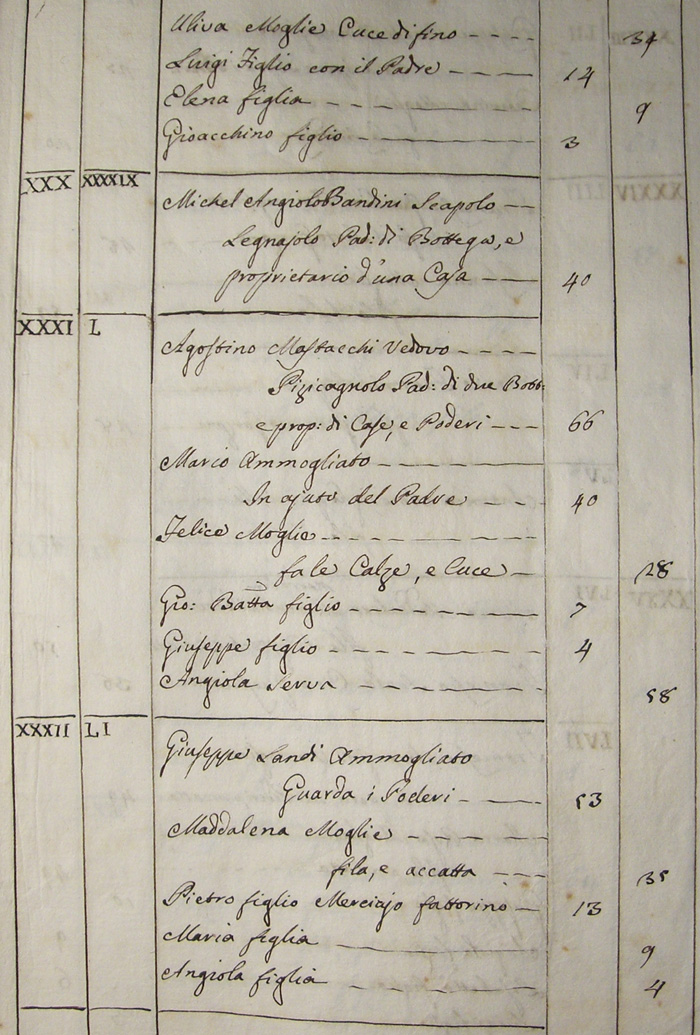 Uliva Moglie Cuce di fino 34
Luigi Figlio con il Padre 14
Elena figlia 9
Gioacchino figlio 3
XXX XXXXIX
Michel Angiolo Bandini Scapolo
Legnajolo Pad: di Bottega, e
proprietario d'una Casa 40
XXXI L
Agostino Mastacchi Vedovo
Pizicagnolo Pad: di due Bott:
e prop: di Case, e Poderi 66
Mario Ammogliato
In ajuto del Padre 40
Felice Moglie
fa le Calze, e Cuce 28
Gio: Batta figlio 7
Giuseppe figlio 4
Angiola Serva 58
XXXII LI
Giuseppe Landi Ammogliato
Guarda i Poderi 53
Maddalena Moglie
fila, e accatta 35
Pietro figlio Merciajo fattorino 13
Maria figlia 9
Angiola figlia 4